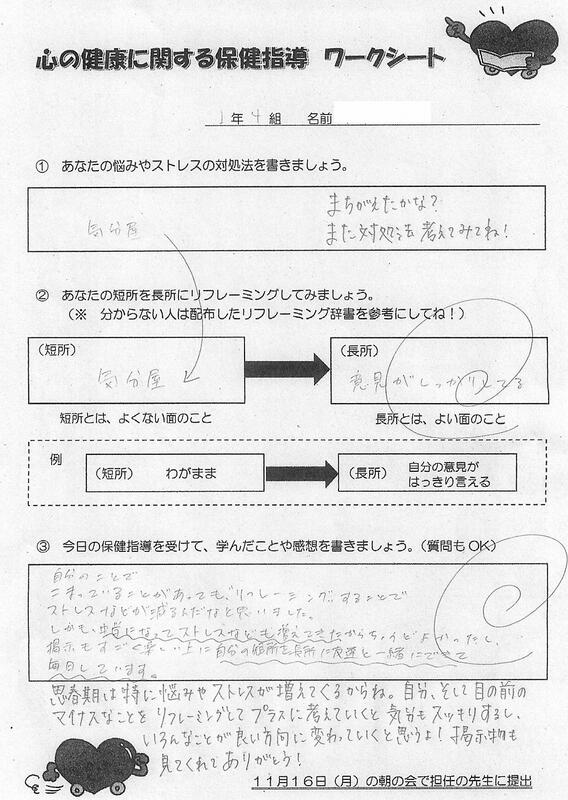 心の健康に関する保健指導 ワークシート
1年 4組 名前
① あなたの悩みやストレスの対処法を書きましょう。
気分屋
まちがえたかな?
また対処法考えてみてね!
② あなたの短所を長所にリフレーミングしてみましょう。
(※ 分からない人は配布したリフレーミング辞書を参考にしてね!)
(短所)
気分屋
(長所)
意見がしっかりしてる
短所とは、よくない面のこと
長所とは、よい面のこと
例
(短所) わがまま
(長所) 自分の意見が
はっきり言える
③ 今日の保健指導を受けて、学んだことや感想を書きましょう。(質問もOK)
自分のことで
こまっていることがあっても、リフレーミングすることで
ストレスなどが減るんだなと思いました。
しかも、になってストレスなども増えてきたからちょうどよかったし、
掲示もすごく楽しい上に自分の短所を長所に友達と一緒にできて
毎日しています。
思春期は特に悩みやストレスが増えてくるからね。自分、そして目の前の
マイナスなことをリフレーミングしてプラスに考えていくと気分もスッキリするし、
いろんなことが良い方向に変わっていくと思うよ!掲示物も
見てくれてありがとう!
11月16日(月)の朝の会で担任の先生に提出